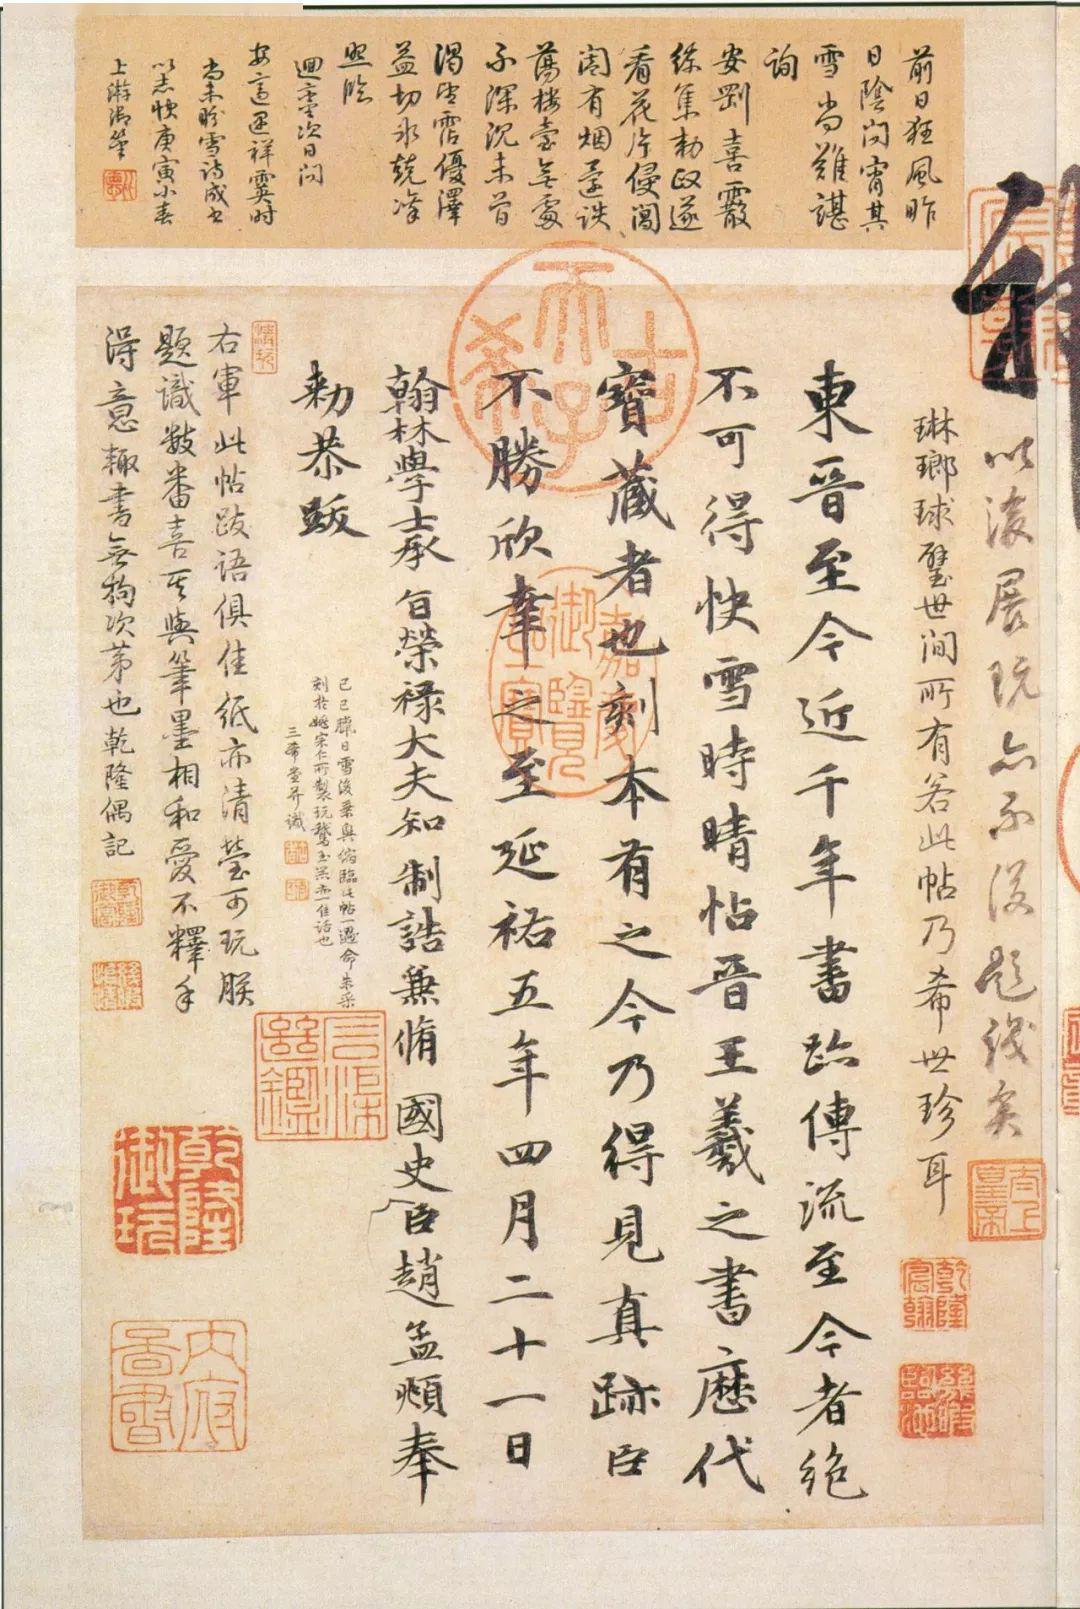 前日狂風昨
日陰問宵其
雪尚難諶
詢
安劉喜霰
終集勅政遂
看花片侵闇
閤有烟蓬迭
蕩樓臺無處
不深沉未曾
渴望霑優澤
益切氷兢凜
照臨
迴鑾次日問
安言還祥霙時
尚未眕雪詩成書
以志快庚寅小春
上澣御筆
以後展玩亦不復題識矣
琳瑯球璧世間所有若此帖乃希世珍耳
東晉至今近千年書跡傳流至今者絶
不可得快雪時晴帖晉王羲之書歷代
寶藏者也刻本有之今乃得見真跡臣
不勝欣幸之至延祐五年四月二十一日
翰林學士承旨榮祿大夫知制誥兼脩國史臣趙孟頫奉
勅恭跋
己巳臘日雪後乘輿偹臨此帖一過命朱采
刻於媲宋仁所製玩鵞玉器亦一佳話也
三希堂并識
右軍此帖跋語俱佳紙亦清瑩可玩朕
題識數番喜其與筆墨相和愛不釋手
得意輙書無拘次第也乾隆偶記
古希天子
嘉慶御覽之寶
太上皇帝
乾隆宸翰
乾隆御玩
内府圖書